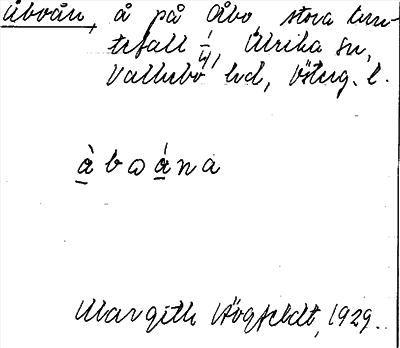 Åboån, å på Åbo, stora
tefall 1/4, Ulrika sn,
Vallebo hd, Österg. l.
àbωána
Margith Högfeldt, 1929.